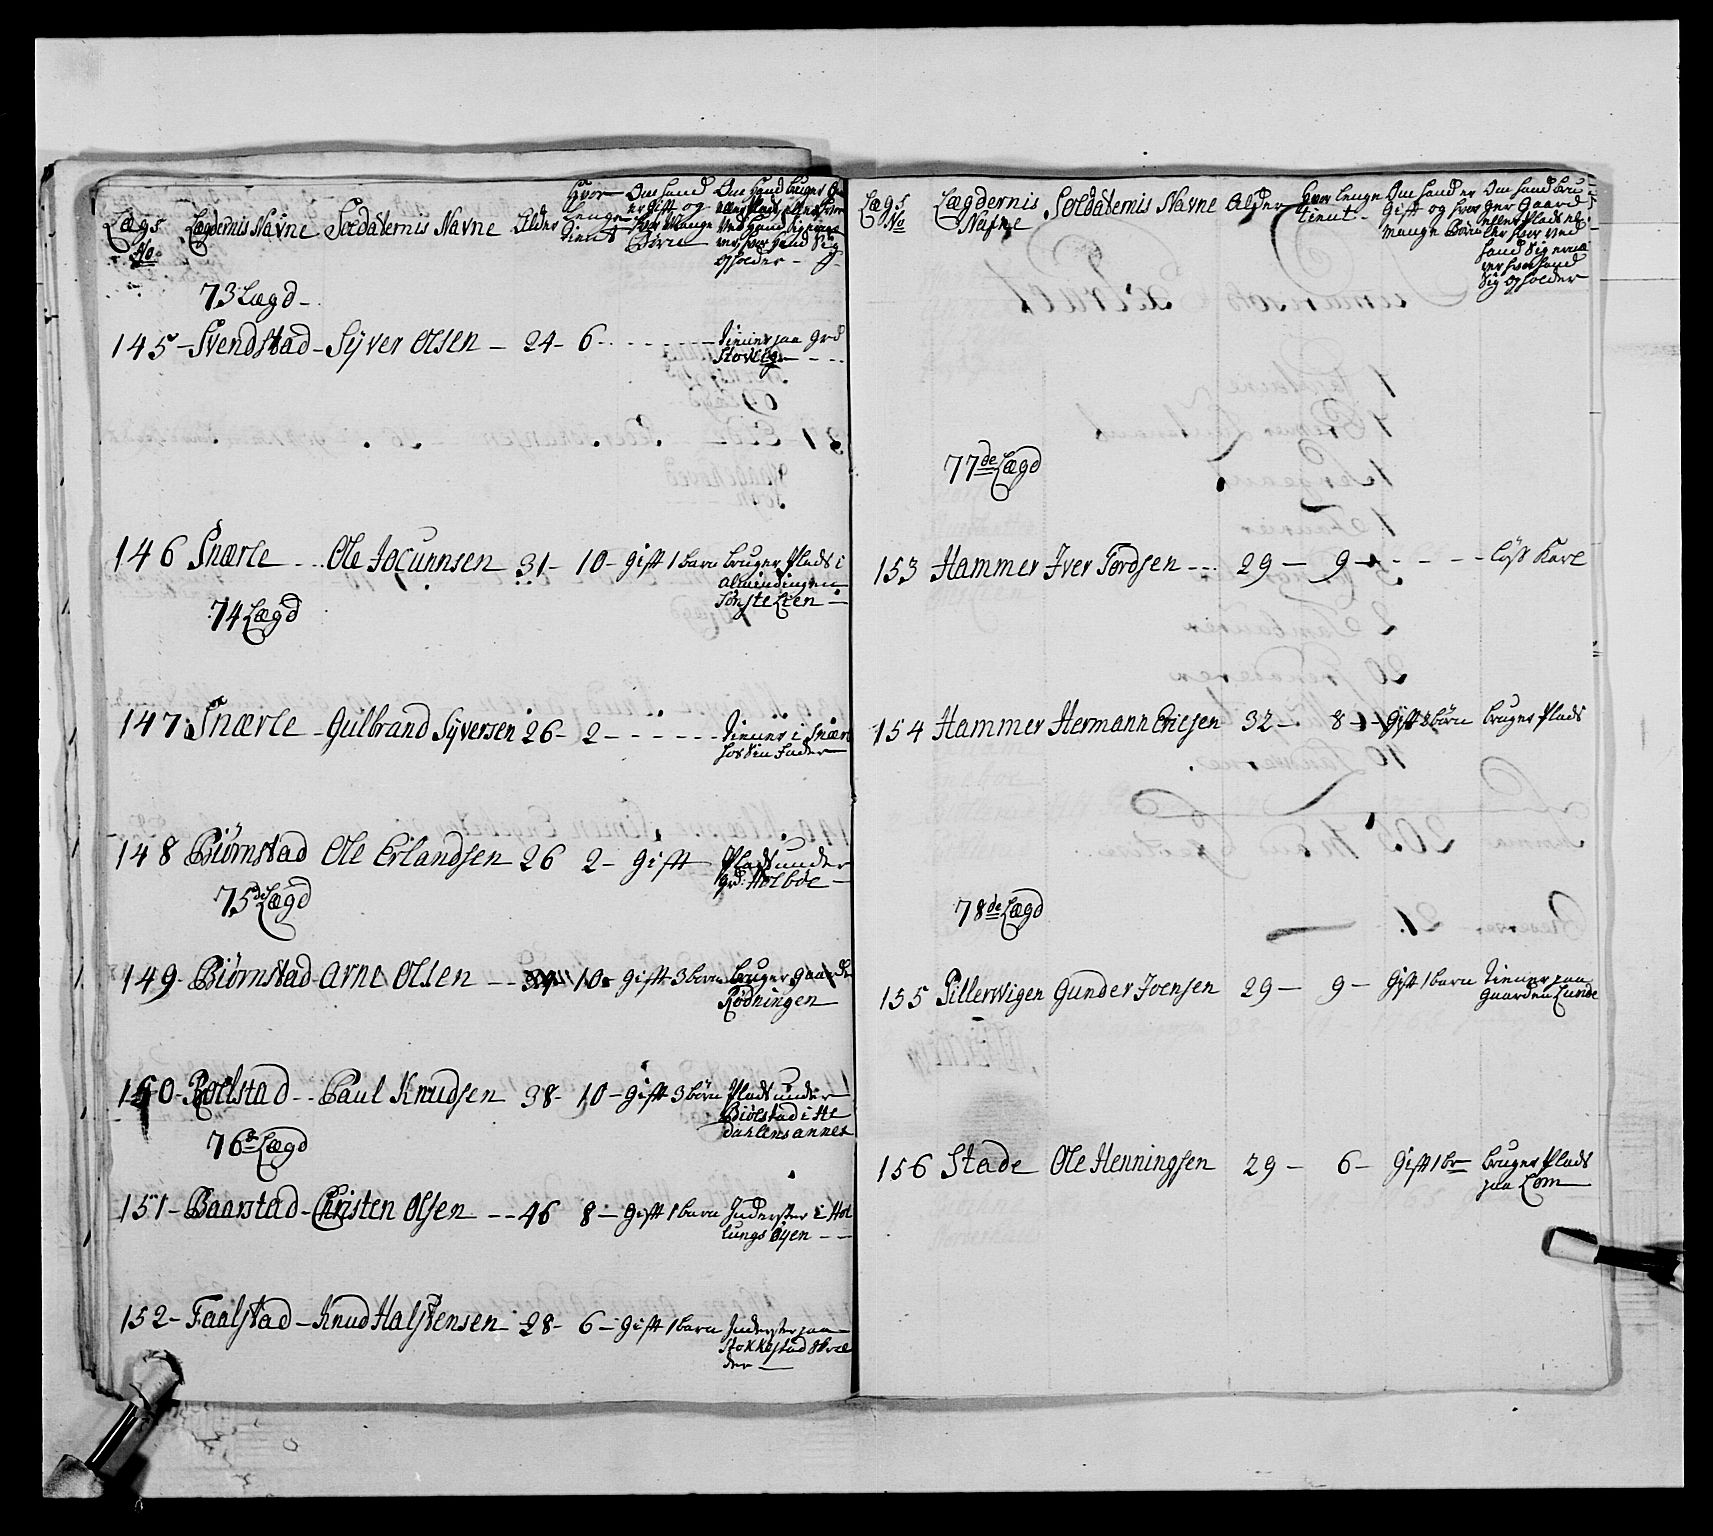 Lægs No: Lægdernis Navne Soldaternis Navne Alder Hvor Lenge Tient Om Hand er Gift og Hvor Mange Børn
opholder
73 Lægd
145 - Svendstad - Syver Olsen - 24 - 6 - Tiener paa Grd
146 Snærle - Ole Jocumsen 31 - 10 - Gift 1 barn bruger Plads i
almindingen
74 Lægd
147 Snærle - Gulbrand Syversen 26 - 2 - Tiener i Snærl
hos sin Fader
148 Biørnstad Ole Erlandsen 26 2 - Gift Plads under
Grd: Holböe
75de Lægd
149 - Biørnstad - Arne Olsen - 10 - Gift 3 barn bruger Gaarde
Rödningen
150 - Paul Knudsen - 38 - 10 - Gift 3 børn Plads under
Biölstad i He
dahlens annex
76de Lægd
151 - Baarstad - Christen Olsen - 46 8 - Gift 1 barn Inderster i Hol
lungs öyen
152 - Faalstad - Knud Halstensen - 28 - 6 - Gift 1 barn Inderster paa
Stokkestad
Lægs No Lægdernis Nafne Soldaternis Navne Alder Hvor Lenge tient - Om Hand er Gift og hvor mange Børn Om Hand bru
ger Gaard
eller Plads el
ler hvor ved
Hand Sig ernæ
rer hvor Hand
Sig opholder
77de Lægd
153 Hammer Iver Tordsen - 29 - 9 - löss Karl
154 Hammer Hermann Ericsen 32 - 8 - Gift børn bruger Plads
78de Lægd
155 Pillerwigen Gunder Joensen 29 - 9 - Gift 1 barn Tiener paa
Gaarden Lunde
156 Stade Ole Henningsen 29 - 6 - Gift 1 br bruger Plads
paa Lom